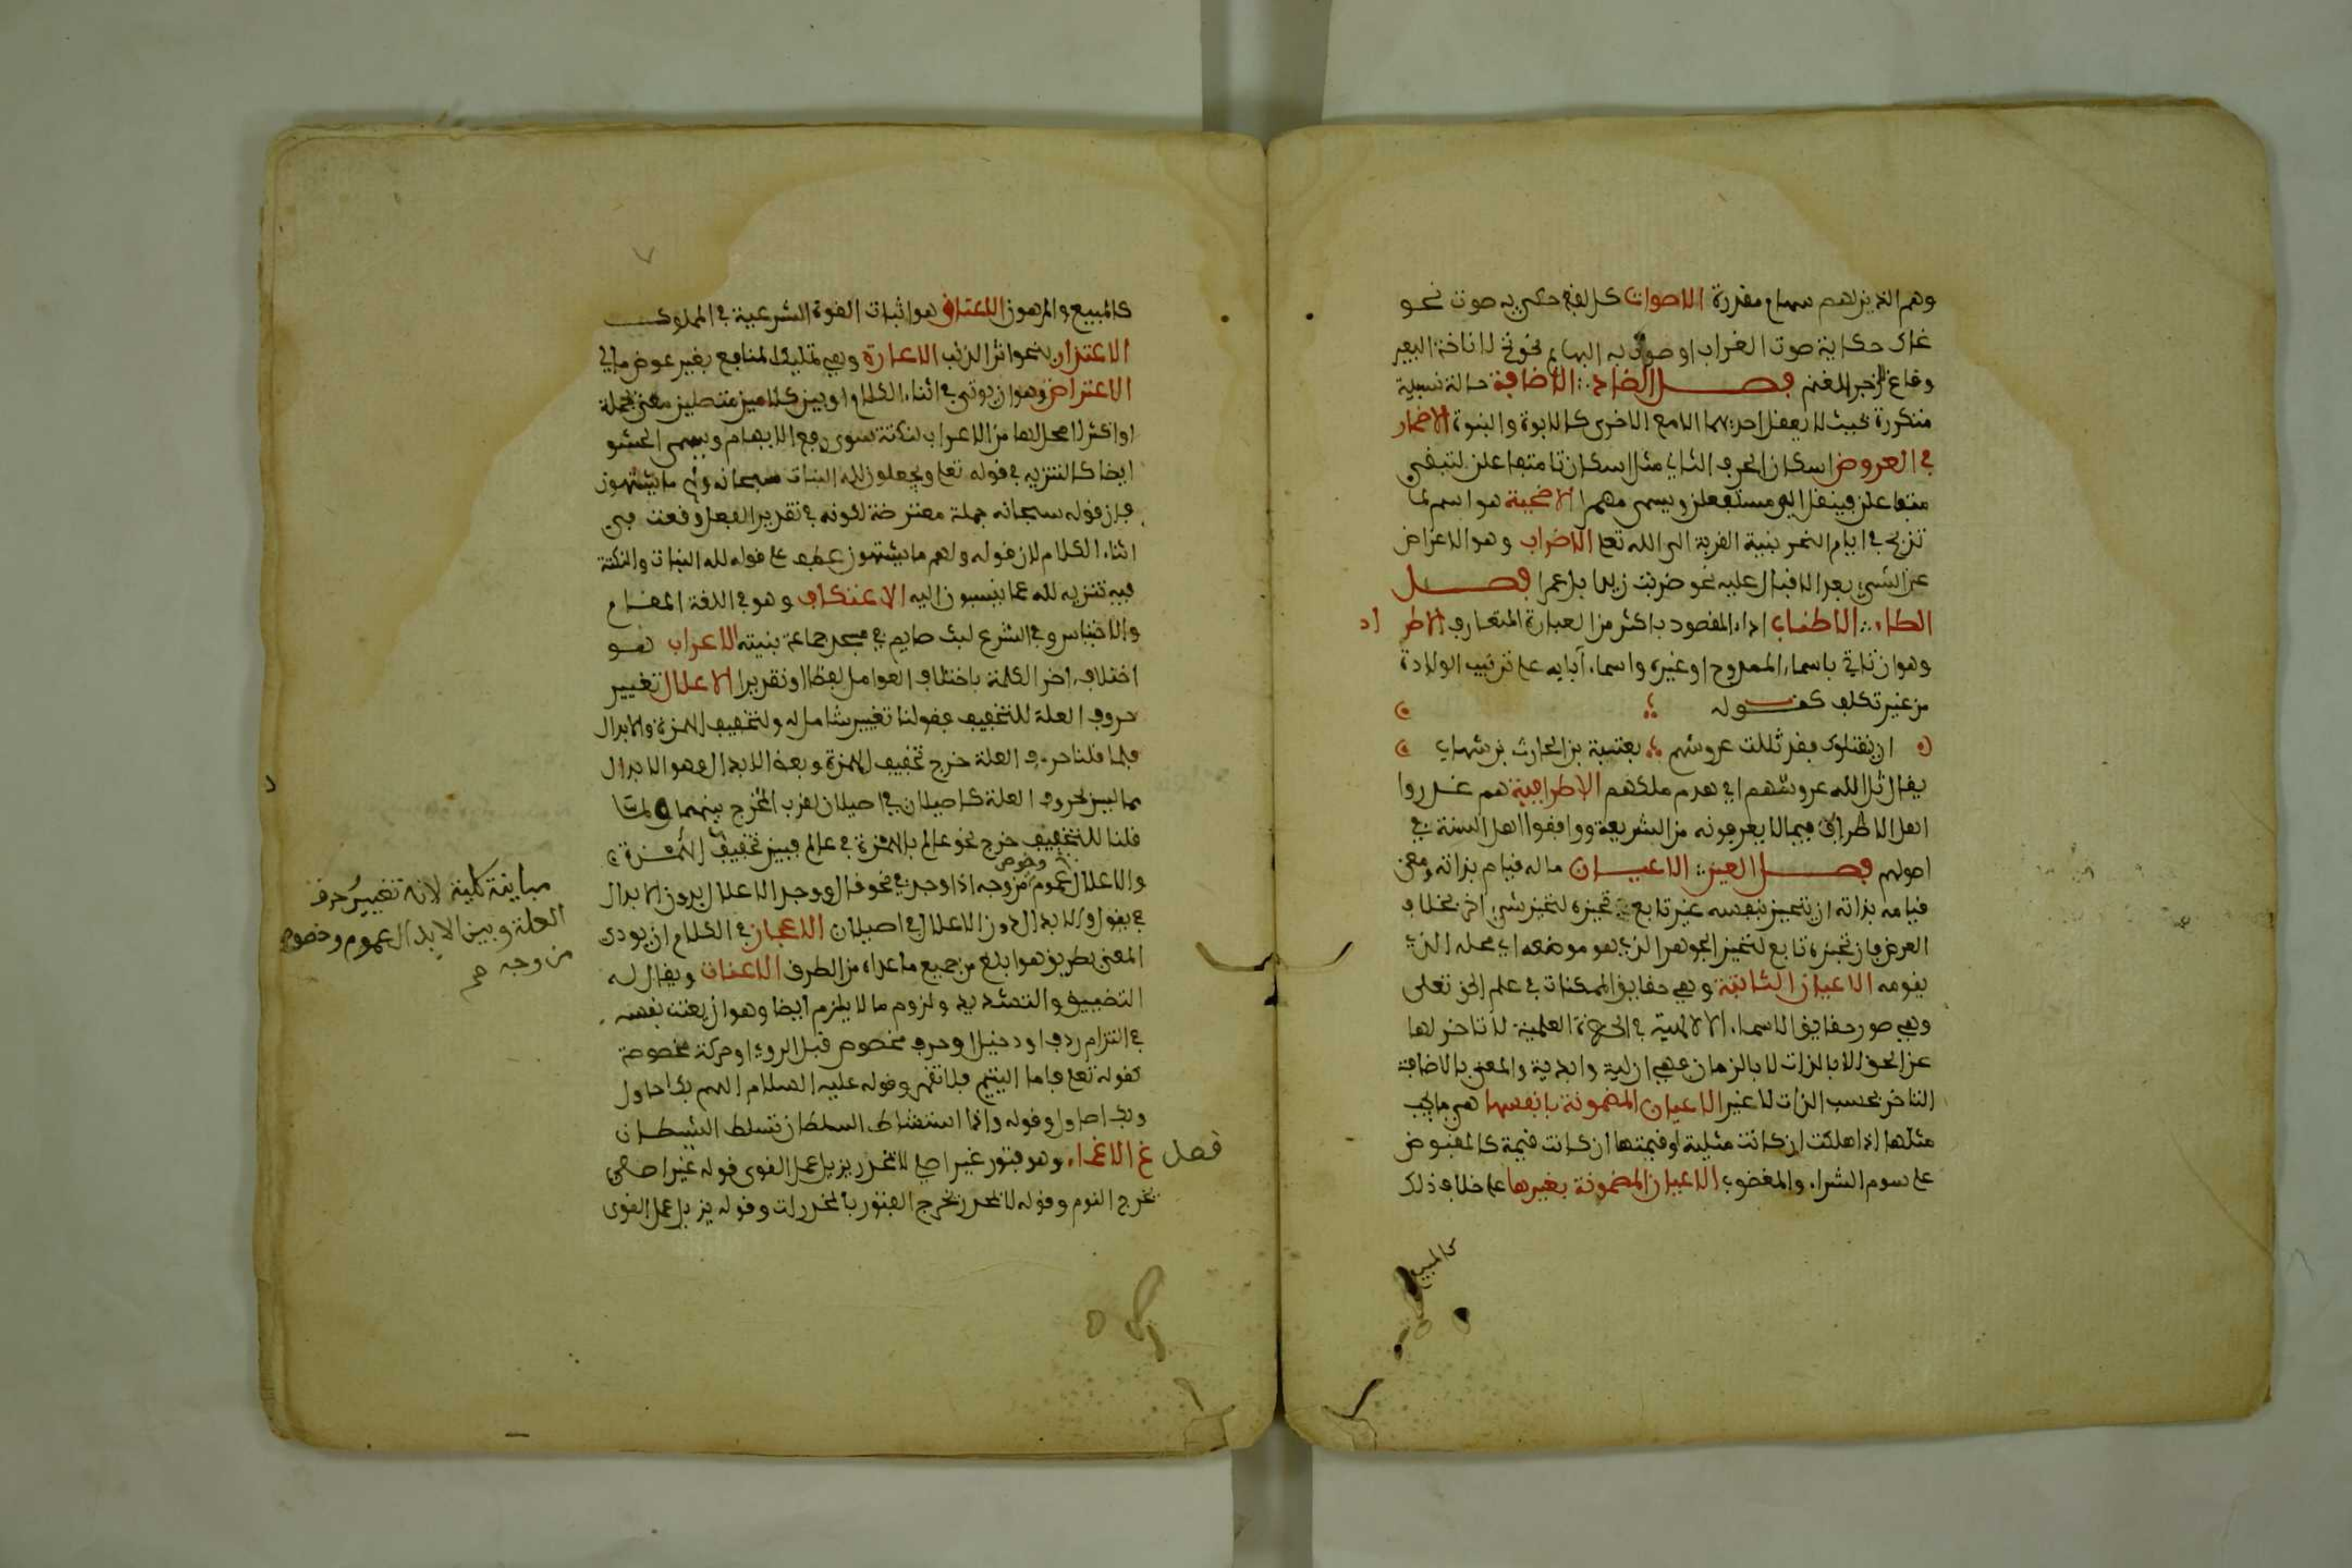 وهم الذين لهم سهام مقدرة الاصوات كل لفظ حكي به صوت نحو
غاق حكاية صوت الغراب او صوت به البهائم نحو نخ لاناخة البعير
وقاع لزجر الغنم فصل الضاد الاضافة حالة نسبية
متكررة بحيث لا تعقل احديهما الا مع الاخرى كالابوة والبنوة الاضمار
في العروض اسكان الحرف الثاني مثل اسكان تا متفاعلن لتبقى
متفاعلن فينقل الى مستفعلن ويسمى مضمرا الاضحية هو اسم لما
تذبح في ايام النحر بنية القربة الى الله تعلى الاضراب وهو الاعراض
عن الشيء بعد الاقبال عليه نحو ضربت زيدا بل عمرا فصل
الطاء الاطناب اداء المقصود باكثر من العبارة المتعارف الاطراد
وهو ان تاتي باسماء الممدوح او غيره واسماء آبايه على ترتيب الولادة
من غير تكلف كقوله
ان يقتلوك فقد ثللت عروشهم بعتيبة بن الحارث بن شهاب
يقال ثل الله عروشهم اي هدم ملكهم الاطرافية هم عذروا
اهل الاطراف فيما لا يعرفونه من الشريعة ووافقوا اهل السنة في
اصولهم فصل العين الاعيان ما له قيام بذاته ومعنى
قيامه بذاته ان يتحيز بنفسه غير تابع تحيزه لتحيز شيء اخر بخلاف
العرض فان تحيزه تابع لتحيز الجوهر الذي هو موضعه اي محله الذي
يقومه الاعيان الثابتة وهي حقايق الممكنات في علم الحق تعلى
وهي صور حقايق الاسماء الالهية في الحضرة العلمية لا تاخر لها
عن الحق الا بالذات لا بالزمان فهي ازلية وابدية والمعني بالاضافة
التاخر بحسب الذات لا غير الاعيان المضمونة بانفسها هي ما يجب
مثلها اذا هلكت ان كانت مثلية او قيمتها ان كانت قيمة كالمقبوض
على سوم الشراء والمغصوب الاعيان المضمونة بغيرها على خلاف ذلك
كالمبيع
كالمبيع والمرهون الاعتاق هو اثبات القوة الشرعية في المملوك
الاعتذار محو اثر الذنب الاعارة وهي تمليك المنافع بغير عوض مالي
الاعتراض وهو ان يوتى في اثناء الكلام او بين كلامين متصلين معنى بجملة
او اكثر لا محل لها من الاعراب لنكتة سوى رفع الابهام ويسمى الحشو
ايضا كالتنزيه في قوله تعلى ويجعلون لله البنات سبحانه ولهم ما يشتهون
فان قوله سبحانه جملة معترضة لكونه في تقدير الفعل وقعت في
اثناء الكلام لان قوله ولهم ما يشتهون عطف على قوله لله البنات والنكتة
فيه تنزيه لله عما ينسبون اليه الاعتكاف وهو في اللغة المقام
والاحتباس وفي الشرع لبث صايم في مسجد جماعة بنيته الاعراب هو
اختلاف اخر الكلمة باختلاف العوامل لفظا او تقديرا الاعلال تغيير
حروف العلة للتخفيف فقولنا تغيير شامل له ولتخفيف الهمزة والابدال
فلما قلنا حروف العلة خرج تخفيف الهمزة وبعض الابدال وهو الابدال
مما ليس بحروف العلة كاصيلال في اصيلان لقرب المخرج بينهما ولما
قلنا للتخفيف خرج نحو عالم بالهمزة في عالم فبين تخفيف الهمزة
والاعلال عموم وخصوص من وجه اذا وجدا في نحو قال ووجد الاعلال بدون الابدال
في يقول والابدال دون الاعلال في اصيلان الاعجاز في الكلام ان يودى
المعنى بطريق هو ابلغ من جميع ما عداه من الطرق الاعنات ويقال له
التضييق والتشديد ولزوم ما لا يلزم ايضا وهو ان يعنت نفسه
في التزام ردف او دخيل او حرف مخصوص قبل الروي او حركة مخصوصة
كقوله تعلى فاما اليتيم فلا تقهر وقوله عليه السلام اللهم بك احاول
وبك اصاول وقوله واذا استشاط السلطان تسلط الشيطان
فصل غ الاغماء وهو فتور غير اصلي لا بمخدر يزيل عمل القوى قوله غير اصلي
يخرج النوم وقوله لا بمخدر يخرج الفتور بالمخدرات وقوله يزيل عمل القوى
مباينة كلية لانه تغيير حرف
العلة وبين الابدال عموم وخصوص
من وجه صح